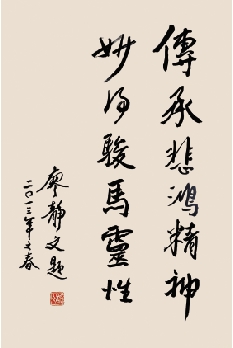 傳承悲鴻精神
妙得駿馬靈性
廖靜文題
二〇一三年之春